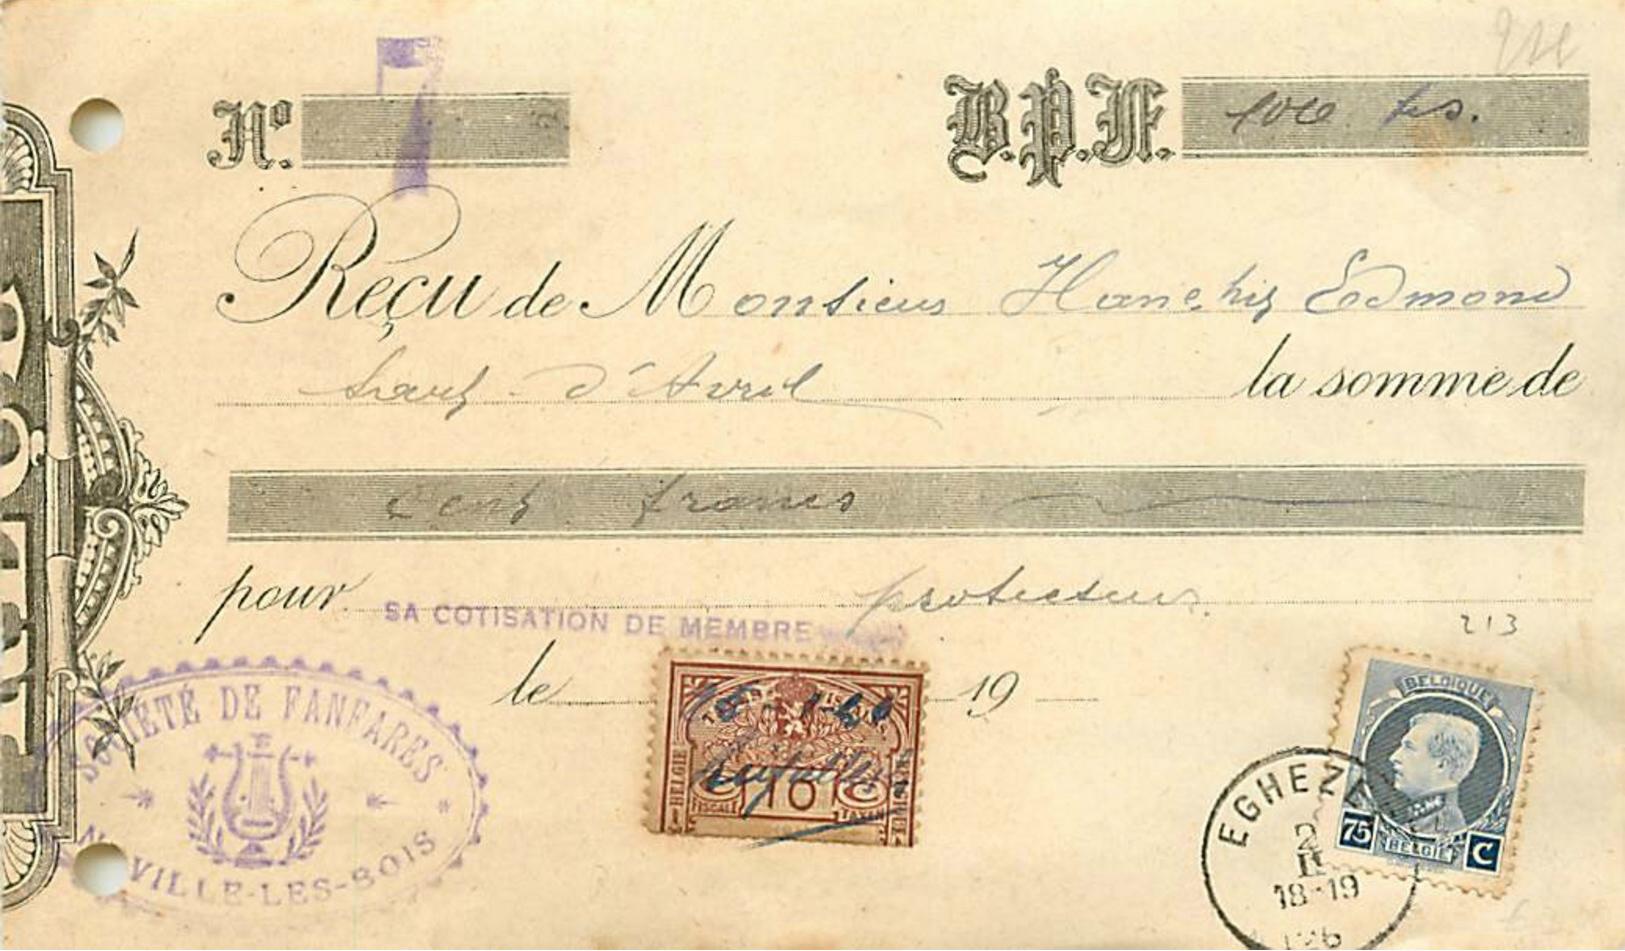 Nº. B.P.F. 100 frs.
Reçu de Monsieur Edmond
d'Avril la somme de
cent francs
pour SA COTISATION DE MEMBRE protecteur.
213
le 19
SOCIÉTÉ DE FANFARES
VILLE-LES-BOIS
BELGIE
FISCALE 10 C TAXEN
BELGIQUE
75 BELGIË C
EGHEZ
2
II
18-19
26